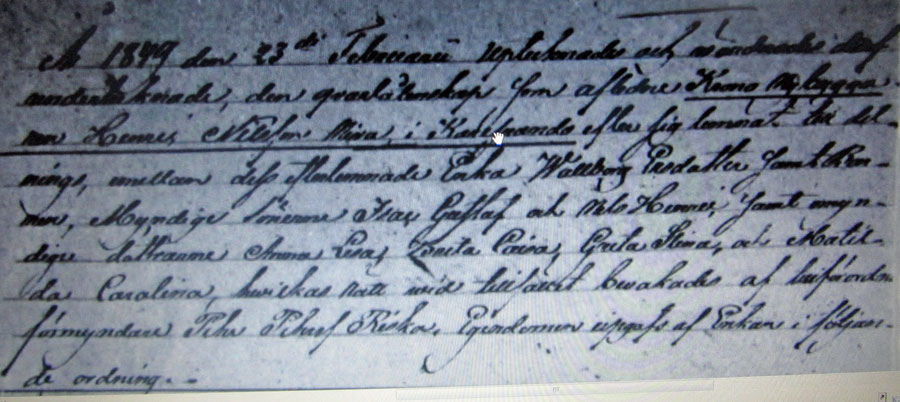 År 1849 den 23de Februarii uptecknades och wärderades af
undertecknade, den qvarlåtenskap som aflidne Krono Nybyggaren
Henric Nilsson Mina, i efter sig lemnat till del-
nings, emellan dess efterlemnade Enka Wallborg Persdotter samt
Myndige Sönerne Isac Gustaf och Nils Henric, samt omyn-
dige döttrarne Anna Lisa, Greta Caisa, Greta Stina, och Matil-
da Carolina, hwilkas rätt wid tillfället bewakades af
förmyndare Pehr Pehrsson Riska. Egendomen upgafs af Enkan i följan-
de ordning. -